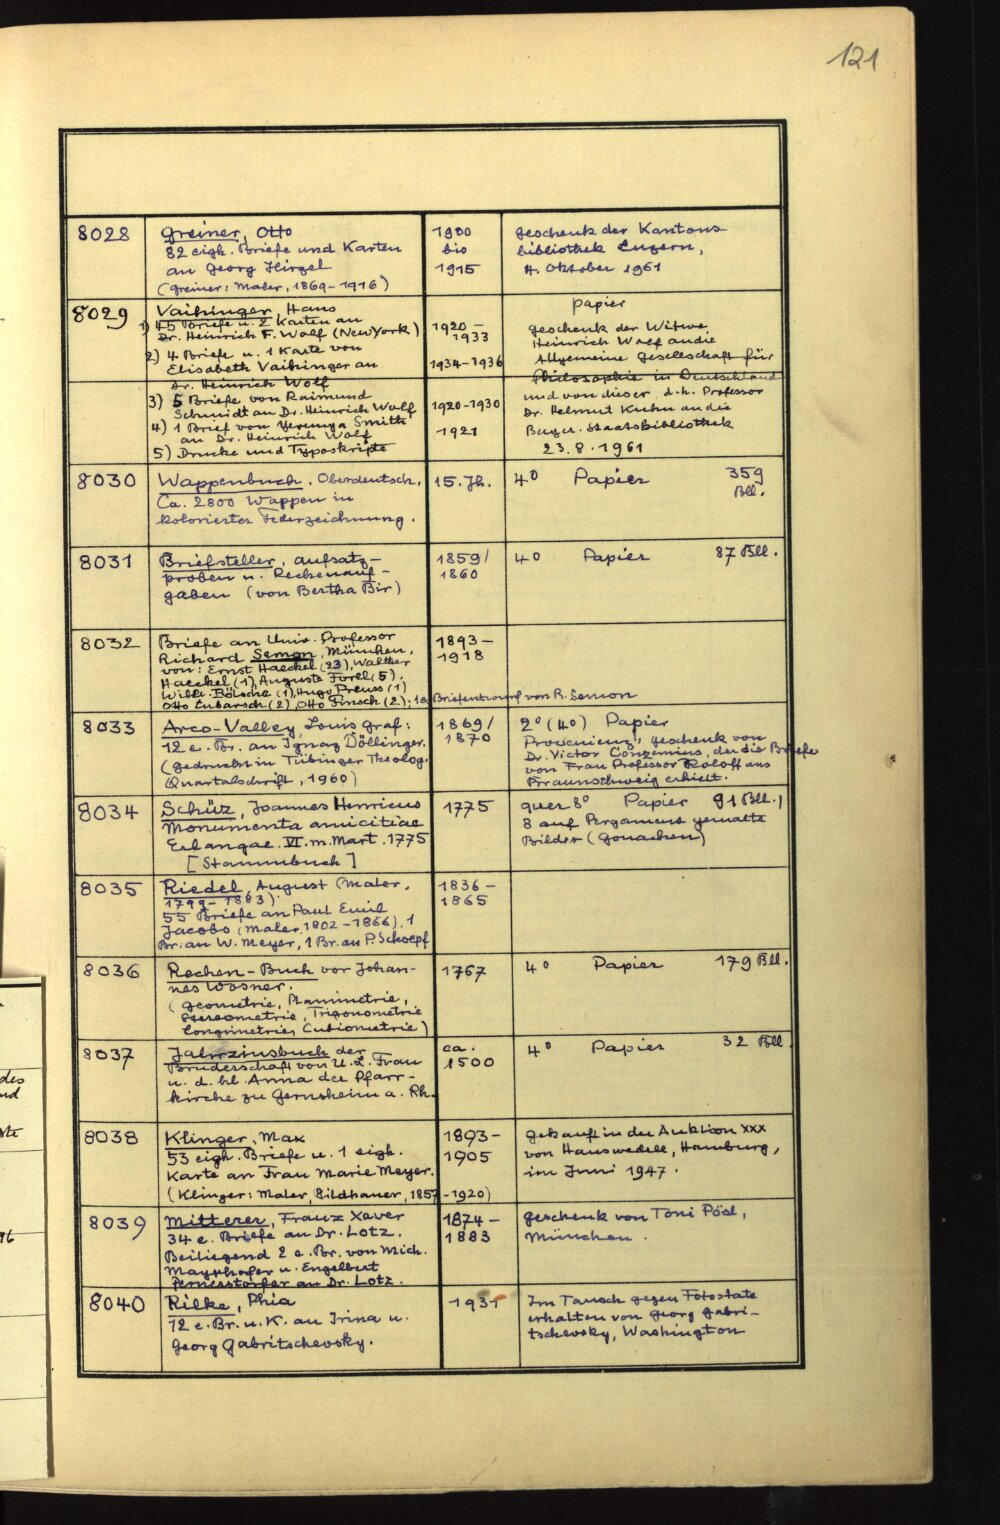 121
8028
Greiner, Otto
82 eigh. Briefe und Karten
an Georg Hirzel
(Greiner: Maler, 1869-1916)
1900
bis
1915
Geschenk der Kantons
bibliothek Luzern,
4. Oktober 1961
8029
Vaihinger, Hans
1) 45 Briefe u. 2 Karten an
Dr. Heinrich F. Wolf (New York)
2) 4 Briefe u. 1 Karte von
Elisabeth Vaihinger an
Dr. Heinrich Wolf
3) 5 Briefe von Raimund
Schmidt an Dr. Heinrich Wolf
4) 1 Brief von Smith
an Dr. Heinrich Wolf
5) Drucke und Typoskripte
1920-
1933
1934-1936
1920-1930
1921
Papier
Geschenk der Witwe
Heinrich Wolf an die
Allgemeine Gesellschaft für
Philosophie in Deutschland
und von dieser, d.h. Professor
Dr. Helmut Kuhn an die
Bayer. Staatsbibliothek
23.8.1961
8030
Wappenbuch. Oberdeutsch.
Ca. 2800 Wappen in
kolorierter Federzeichnung.
15. Jh.
4° Papier 359
Bll.
8031
Briefsteller, Aufsatz-
proben u. Rechenauf-
gaben (von Bertha Bir)
1859/
1860
4° Papier 87 Bll.
8032
Briefe an Univ. Professor
Richard Semon, München,
von: Ernst Haeckel (23), Walther
Haeckel (1), Auguste Forel (5),
Wilh. Bölsche (1), Hugo Preuss (1)
Otto Lubarsch (2), Otto Finsch (2); 1 Briefentwurf von R. Semon
1893-
1918
8033
Arco-Valley, Louis Graf:
12 e. Br. an Ignaz Döllinger.
(Gedruckt in Tübinger Theolog.
Quartalschrift, 1960)
1869/
1870
2° (4°) Papier
Provenienz: Geschenk von
Dr. Victor Conzemius, der die Briefe
von Frau Professor Roloff aus
Braunschweig erhielt.
8034
Schüz, Joannes Henricus
Monumenta amicitiae
Erlangae. VI. m. Mart. 1775
[Stammbuch]
1775
quer 8° Papier 91 Bll.,
8 auf Pergament gemalte
Bilder (Gouachen)
8035
Riedel, August (Maler,
1799-1883)
55 Briefe an Paul Emil
Jacobs (Maler, 1802-1866), 1
Br. an W. Meyer, 1 Br. an P. Schoepf
1836-
1865
8036
Rechen-Buch vor Johan-
nes Wosner.
(Geometrie, Planimetrie,
Stereometrie, Trigonometrie
Longimetrie, Cubiometrie)
1767
4° Papier 179 Bll.
8037
Jahrzinsbuch der
Bruderschaft von U. L. Frau
u. d. hl. Anna der Pfarr-
kirche zu Gernsheim a. Rh.
ca.
1500
4° Papier 32 Bll
8038
Klinger, Max
53 eigh. Briefe u. 1 eigh.
Karte an Frau Marie Meyer.
(Klinger: Maler, Bildhauer, 1857-1920)
1893-
1905
Gekauft in der Auktion XXX
von Hauswedell, Hamburg,
im Juni 1947.
8039
Mitterer, Franz Xaver
34 e. Briefe an Dr. Lotz.
Beiliegend 2 e. Br. von Mich.
Mayrhofer u. Engelbert
Pernerstorfer an Dr. Lotz.
1874-
1883
Geschenk von Toni Pösl,
München.
8040
Rilke, Phia
12 e. Br. u. K. an Irina u.
Georg Gabritschevsky.
1931
Im Tausch gegen Fotostate
erhalten von Georg Gabri-
tschevsky, Washington
des